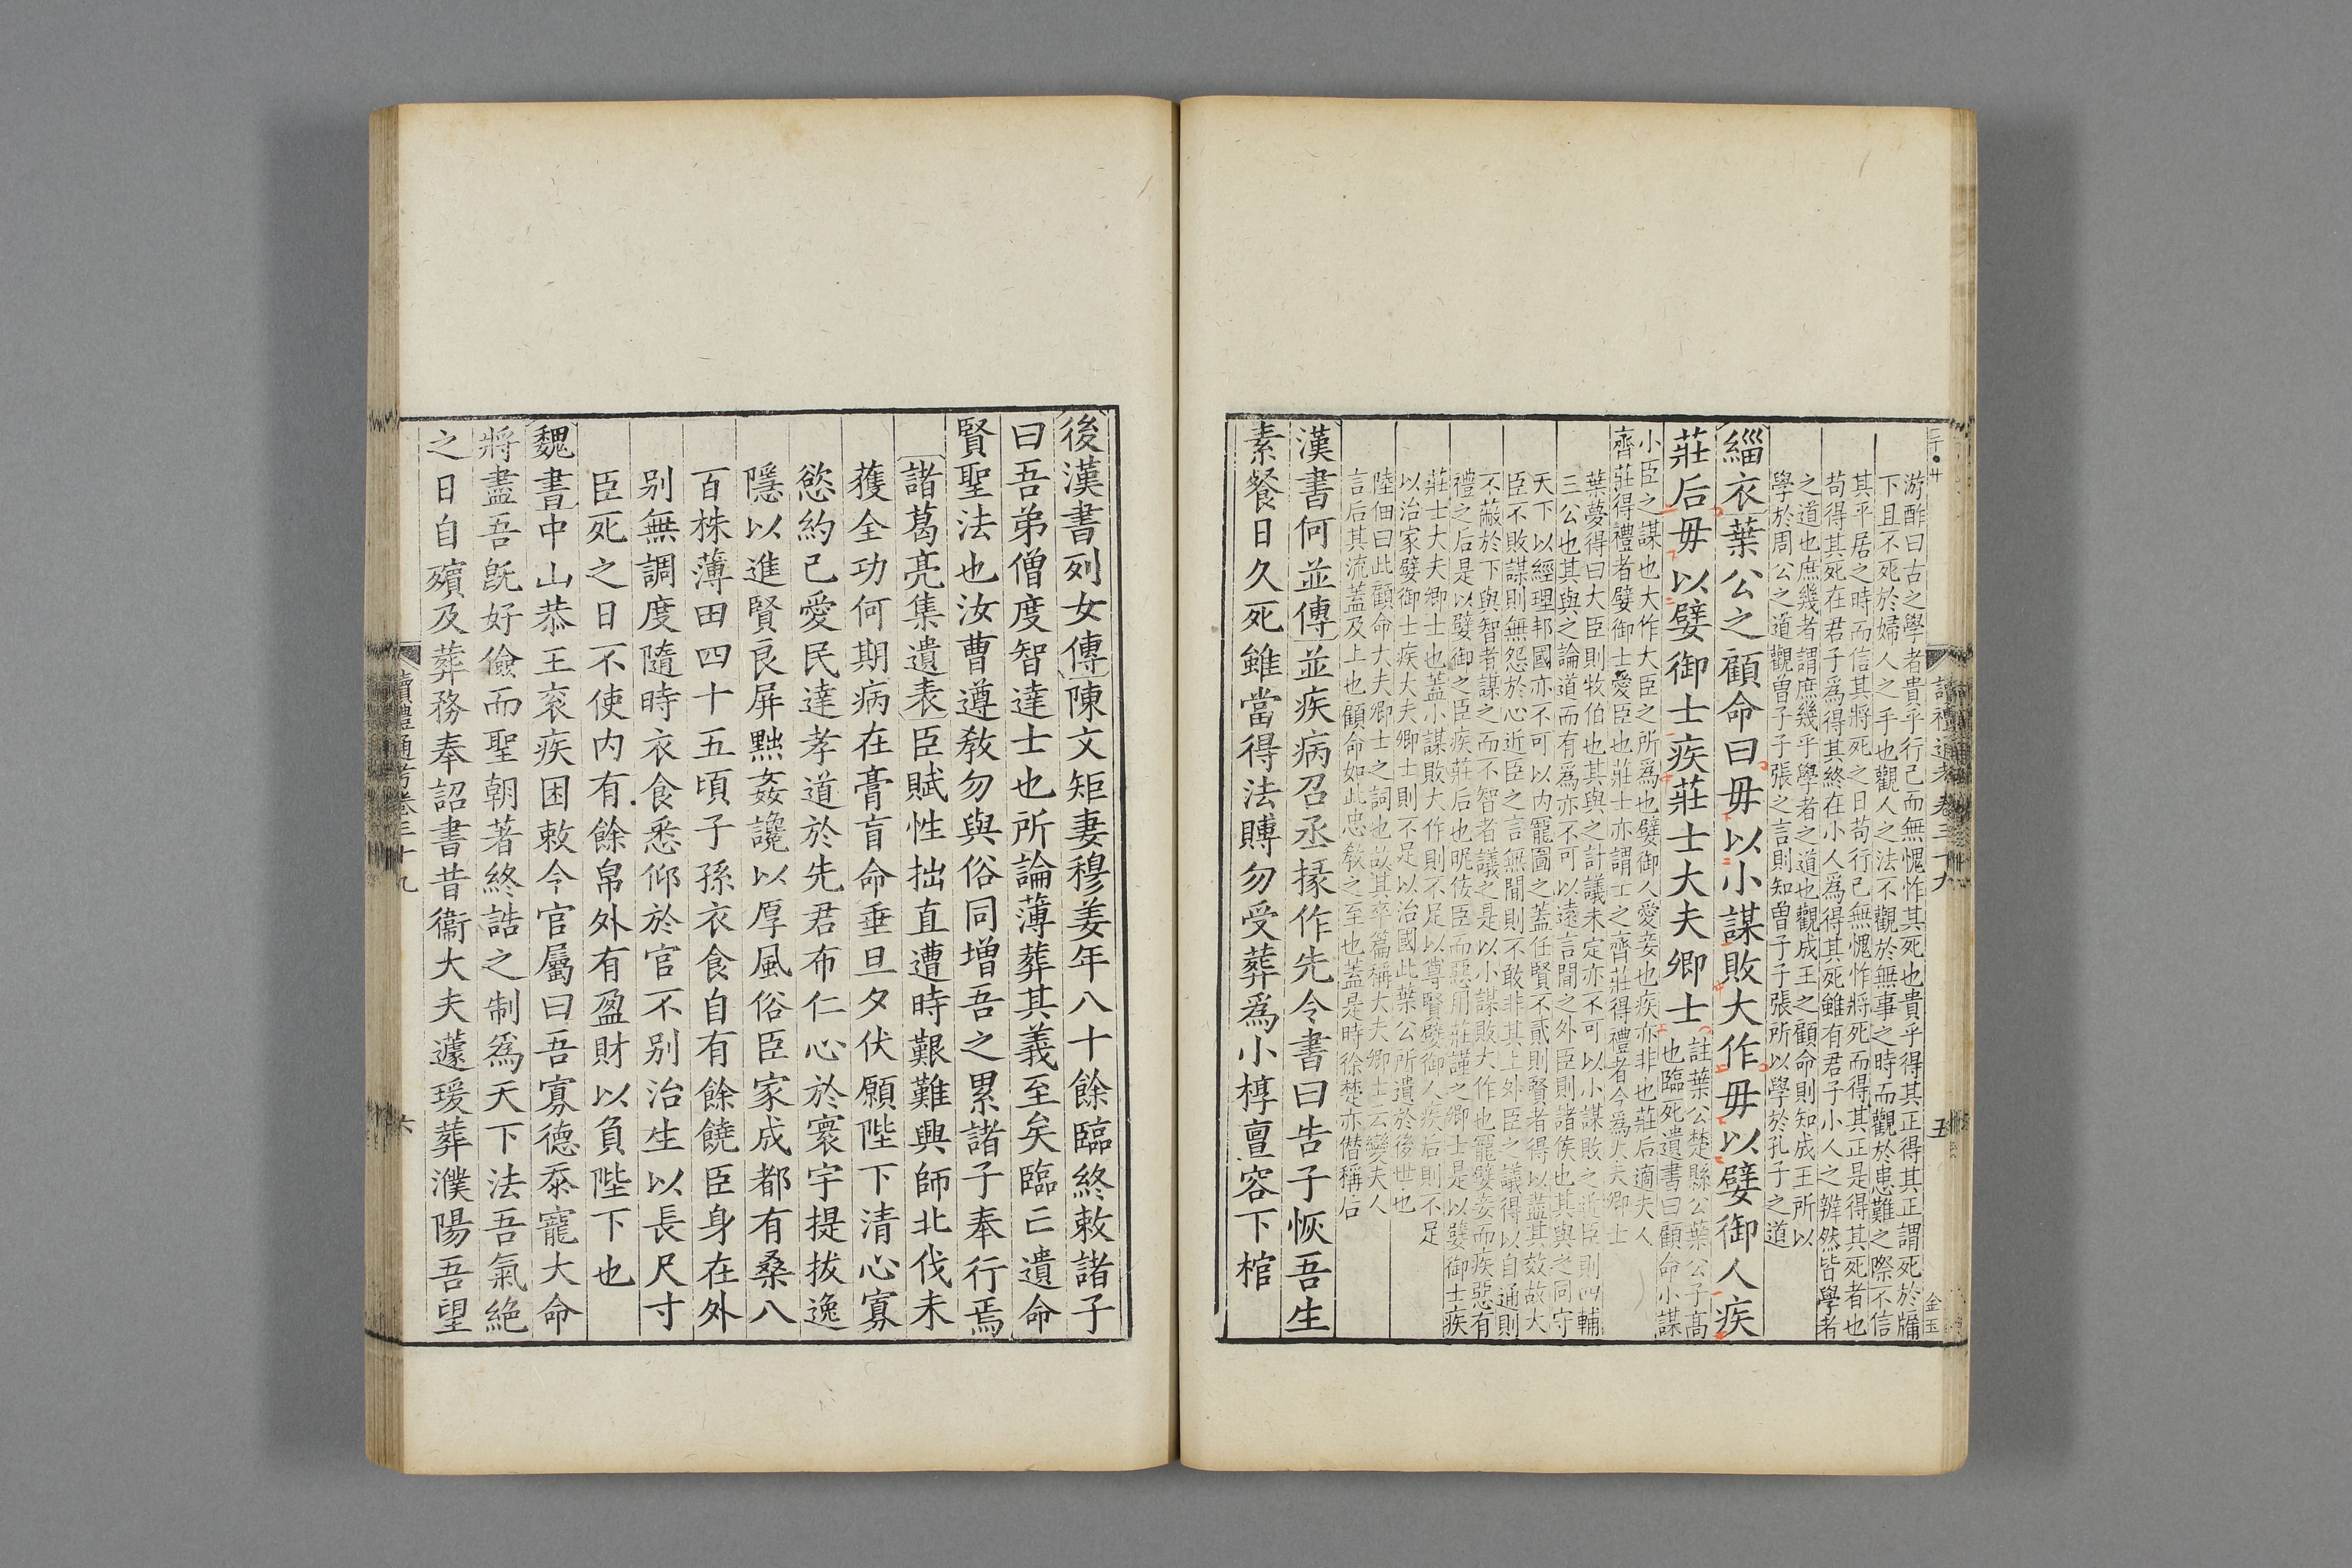 游酢曰古之學者貴乎行己而無愧怍其死也貴乎得其正得其正謂死於牖
下且不死於婦人之手也觀人之法不觀於無事之時而觀於患難之際不信
其平居之時而信其將死之日苟行己無愧怍將死而得其正是得其死者也
苟得其死在君子爲得其終在小人爲得其死雖有君子小人之辨然皆學者
之道也庶幾者謂庶幾乎學者之道也觀成王之顧命則知成王所以
學於周公之道觀曽子子張之言則知曽子子張所以學於孔子之道
緇衣葉公之顧命曰毋以小謀敗大作毋以嬖御人疾
莊后毋以嬖御士疾莊士大夫卿士
註葉公楚縣公葉公子髙
也臨死遺書曰顧命小謀
小臣之謀也大作大臣之所爲也嬖御人愛妾也疾亦非也莊后適夫人
齊莊得禮者嬖御士愛臣也莊士亦謂士之齊莊得禮者今爲大夫卿士
葉夢得曰大臣則牧伯也其與之計議未定亦不可以小謀敗之近臣則四輔
三公也其與之論道而有爲亦不可以遠言間之外臣則諸侯也其與之同守
天下以經理邦國亦不可以内寵圖之蓋任賢不貳則賢者得以盡其效故大
臣不敗謀則無怨於心近臣之言無間則不敢非其上外臣之議得以自通則
不蔽於下與智者謀之而不智者議之是以小謀敗大作也寵嬖妾而疾惡有
禮之后是以嬖御之臣疾莊后也昵侫臣而惡用莊謹之卿士是以嬖御士疾
莊士大夫卿士也蓋小謀敗大作則不足以尊賢嬖御人疾后則不足
以治家嬖御士疾大夫卿士則不足以治國此葉公所遺於後世也
陸佃曰此顧命大夫卿士之詞也故其卒篇稱大夫卿士云變夫人
言后其流蓋及上也顧命如此忠敎之至也蓋是時徐楚亦僭稱后
漢書何並傳並疾病召丞掾作先令書曰告子恢吾生
素餐日久死雖當得法賻勿受葬爲小槨亶容下棺
讀禮通考卷三十九
五
金玉
後漢書列女傳陳文矩妻穆姜年八十餘臨終敕諸子
曰吾弟僧度智達士也所論薄葬其義至矣臨亡遺命
賢聖法也汝曹遵敎勿與俗同增吾之累諸子奉行焉
諸葛亮集遺表臣賦性拙直遭時艱難興師北伐未
獲全功何期病在膏肓命垂旦夕伏願陛下清心寡
慾約己愛民達孝道於先君布仁心於寰宇提拔逸
隱以進賢良屏黜姦讒以厚風俗臣家成都有桑八
百株薄田四十五頃子孫衣食自有餘饒臣身在外
别無調度隨時衣食悉仰於官不别治生以長尺寸
臣死之日不使内有餘帛外有盈財以負陛下也
魏書中山恭王衮疾困敕令官屬曰吾寡德忝寵大命
將盡吾旣好儉而聖朝著終誥之制爲天下法吾氣絶
之日自殯及葬務奉詔書昔衞大夫蘧瑗葬濮陽吾望
讀禮通考卷三十九
六